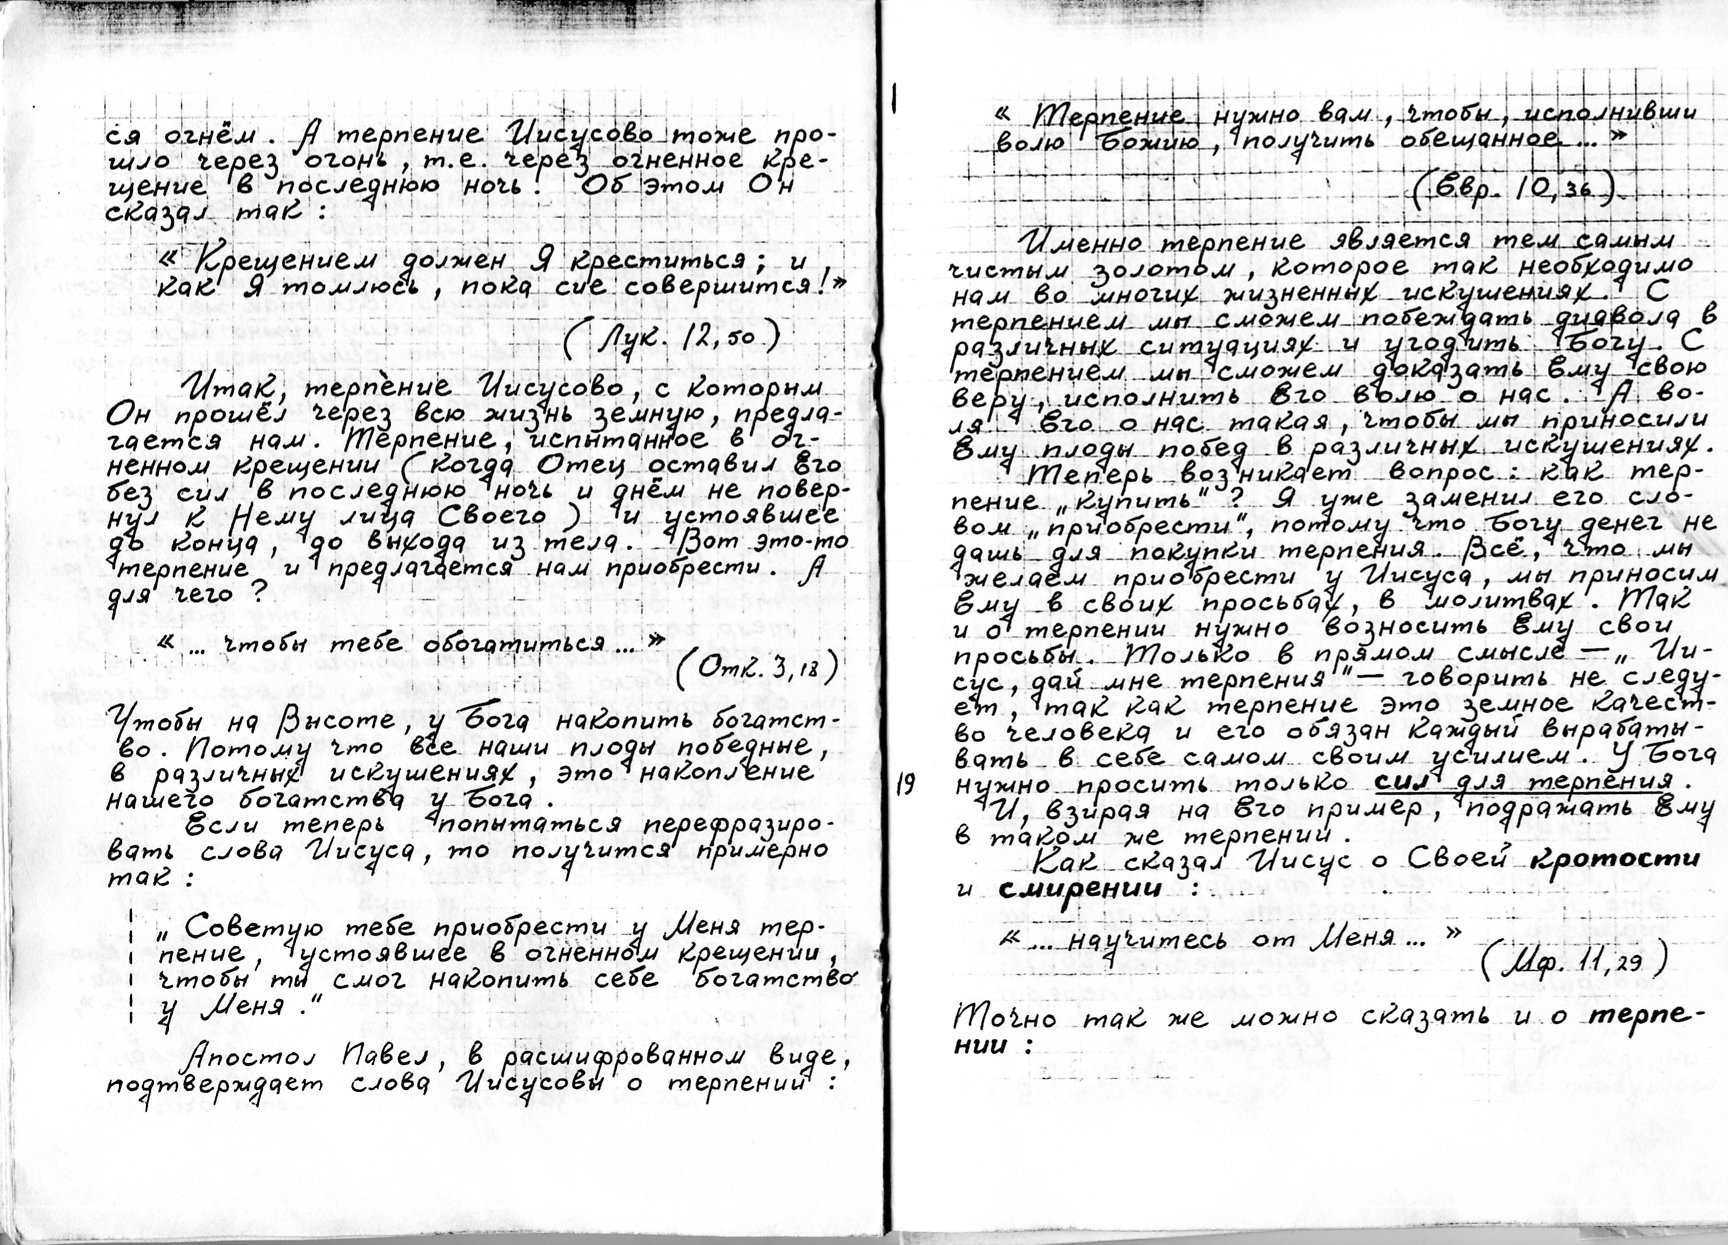 ся огнём. А терпение Иисусово тоже про-
шло через огонь, т.е. через огненное кре-
щение в последнюю ночь. Об этом Он
сказал так:
« Крещением должен Я креститься; и
как Я томлюсь, пока сие совершится!»
(Лук. 12, 50)
Итак, терпение Иисусово, с которым
Он прошёл через всю жизнь земную, предла-
гается нам. Терпение, испытанное в ог-
ненном крещении (когда Отец оставил Его
без сил в последнюю ночь и днём не повер-
нул к Нему лица Своего) и устоявшее
до конца, до выхода из тела. Вот это-то
терпение и предлагается нам приобрести. А
для чего?
« ... чтобы тебе обогатиться ... »
(Отк. 3, 18)
Чтобы на Высоте, у Бога накопить богатст-
во. Потому что все наши плоды победные,
в различных искушениях, это накопление
нашего богатства у Бога.
Если теперь попытаться перефразиро-
вать слова Иисуса, то получится примерно
так:
„ Советую тебе приобрести у Меня тер-
пение, устоявшее в огненном крещении,
чтобы ты смог накопить себе богатство
у Меня."
Апостол Павел, в расшифрованном виде,
подтверждает слова Иисусовы о терпении:
« Терпение нужно вам, чтобы, исполнивши
волю Божию, получить обещанное ... »
(Евр. 10, 36)
Именно терпение является тем самым
чистым золотом, которое так необходимо
нам во многих жизненных искушениях. С
терпением мы сможем побеждать диавола в
различных ситуациях и угодить Богу. С
терпением мы сможем доказать Ему свою
веру, исполнить Его волю о нас. А во-
ля Его о нас такая, чтобы мы приносили
Ему плоды побед в различных искушениях.
Теперь возникает вопрос: как тер-
пение „купить"? Я уже заменил его сло-
вом „приобрести", потому что Богу денег не
дашь для покупки терпения. Всё, что мы
желаем приобрести у Иисуса, мы приносим
Ему в своих просьбах, в молитвах. Так
и о терпении нужно возносить Ему свои
просьбы. Только в прямом смысле — „ Ии-
сус, дай мне терпения" — говорить не следу-
ет, так как терпение это земное качест-
во человека и его обязан каждый вырабаты-
вать в себе самом своим усилием. У Бога
19 нужно просить только сил для терпения.
И, взирая на Его пример, подражать Ему
в таком же терпении.
Как сказал Иисус о Своей кротости
и смирении:
« ... научитесь от Меня ... »
(Мф. 11, 29)
Точно так же можно сказать и о терпе-
нии: